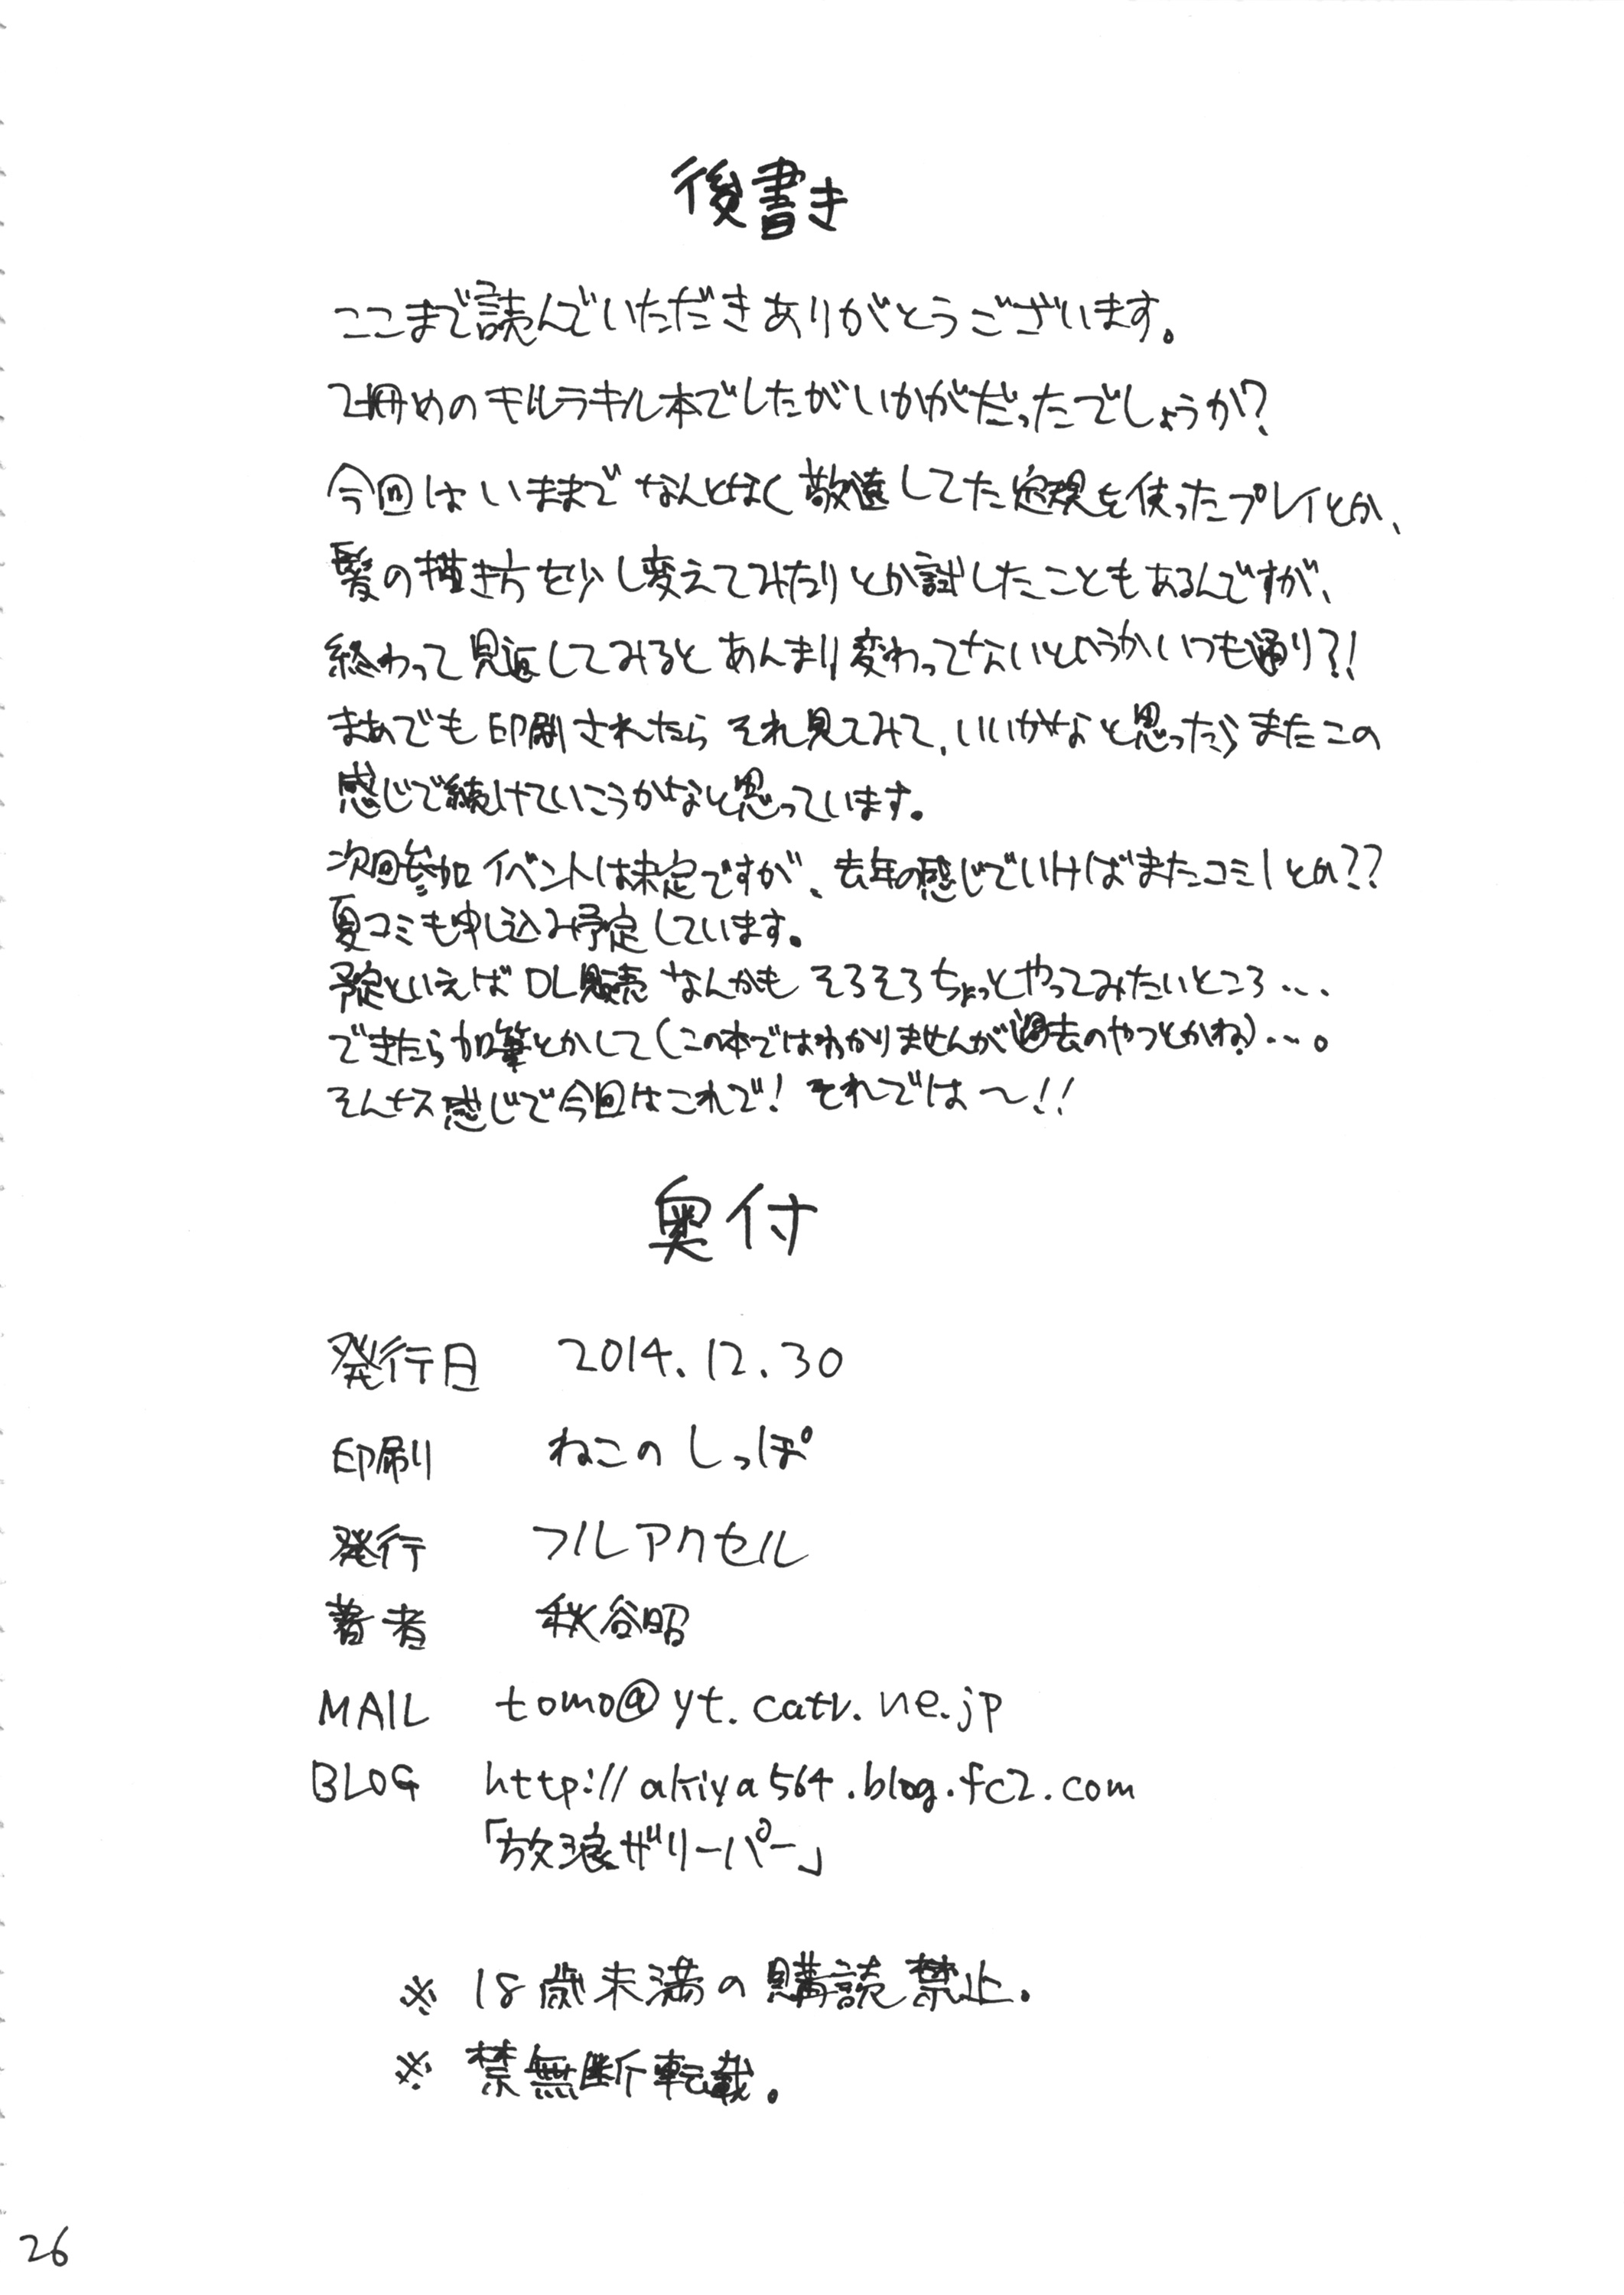 後書き
ここまで読んでいただきありがとうございます。
2冊めのキルラキル本でしたがいかがだったでしょうか?
今回はいままでなんとなく敬遠してた定規を使ったプレイとか、
髪の描き方を少し変えてみたりとか試したこともあるんですが、
終わって見返してみるとあんまり変わってないというかいつも通り?!
まあでも印刷されたらそれ見てみて、いいかなと思ったらまたこの
感じで続けていこうかなと思っています。
次回参加イベントは未定ですが、去年の感じでいけばまたコミ1とか??
夏コミも申し込み予定しています。
予定といえばDL販売なんかもそろそろちょっとやってみたいところ...
できたら加筆とかして(この本ではわかりませんが過去のやつとかね)...。
そんな感じで今回はこれで!それでは〜!!
奥付
発行日 2014.12.30
印刷 ねこのしっぽ
発行 フルアクセル
著者 秋谷昭
MAIL tomo@yt.catv.ne.jp
BLOG http://akiya564.blog.fc2.com
「放浪ザリーパー」
※ 18歳未満の購読禁止.
※ 禁無断転載.
26